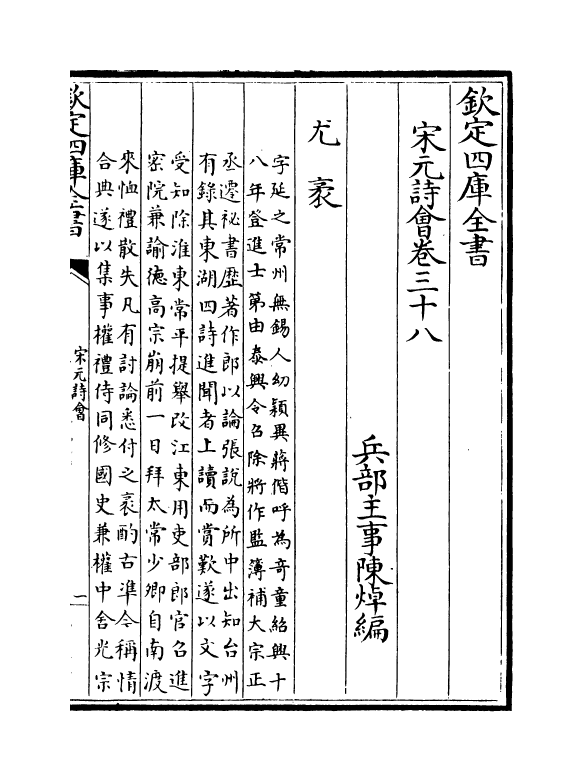 欽定四庫全書
宋元詩會卷三十八
兵部主事陳焯編
尤袤
字延之常州無錫人幼穎異蔣偕呼為奇童紹興十
八年登進士第由泰興令召除將作監簿補大宗正
丞遷祕書歷著作郎以論張說為所中出知台州
有錄其東湖四詩進聞者上讀而賞歎遂以文字
受知除淮東常平提舉改江東用吏部郎官召進
密院兼諭德高宗崩前一日拜太常少卿自南渡
來恤禮散失凡有討論悉付之袤酌古準今稱情
合典遂以集事權禮侍同修國史兼權中舍光宗
欽定四庫全書
宋元詩會
一